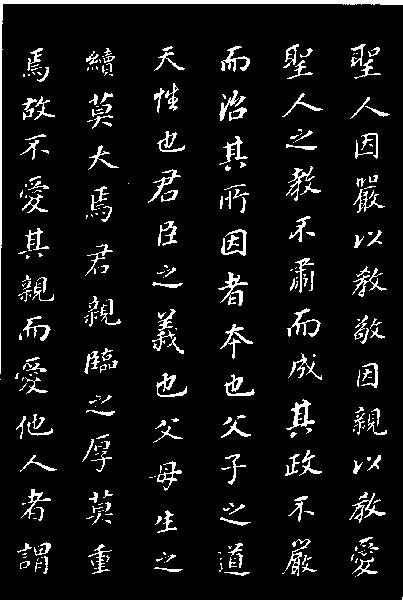 聖人因嚴以教敬因親以教愛
聖人之教不肅而成其政不嚴
而治其所因者本也父子之道
天性也君臣之義也父母生之
續莫大焉君親臨之厚莫重
焉故不愛其親而愛他人者謂